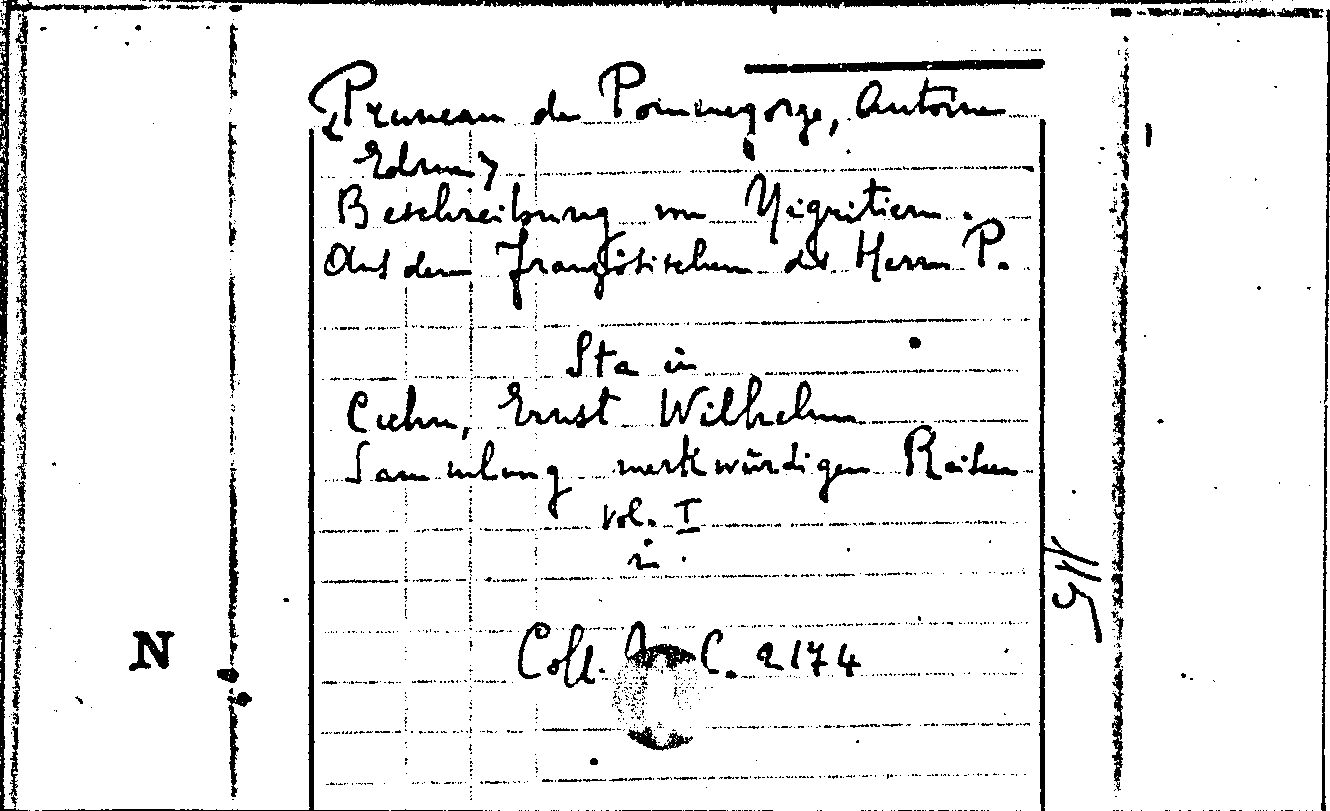 <Pruneau de Pommegorge, Antoine
Edme>
Beschreibung von Nigritien.
Aus dem Französischen des Herrn P.
Sta in
Cuhn, Ernst Wilhelm
Sammlung merkwürdigen Reisen
Vol. I
in
Coll. C. 2174
N